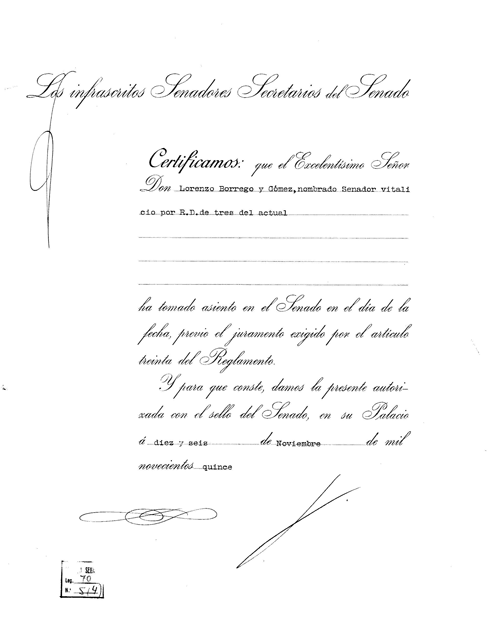 Los infrascritos Senadores Secretarios del Senado
Certificamos: que el Excelentísimo Señor
Don Lorenzo Borrego y Gómez, nombrado Senador vitali
cio por R.D. de tres del actual
ha tomado asiento en el Senado en el día de la
fecha, previo el juramento exigido por el artículo
treinta del Reglamento.
Y para que conste, damos la presente autori-
zada con el sello del Senado, en su Palacio
á diez y seis de Noviembre de mil
novecientos quince
Leg. 70
N.º